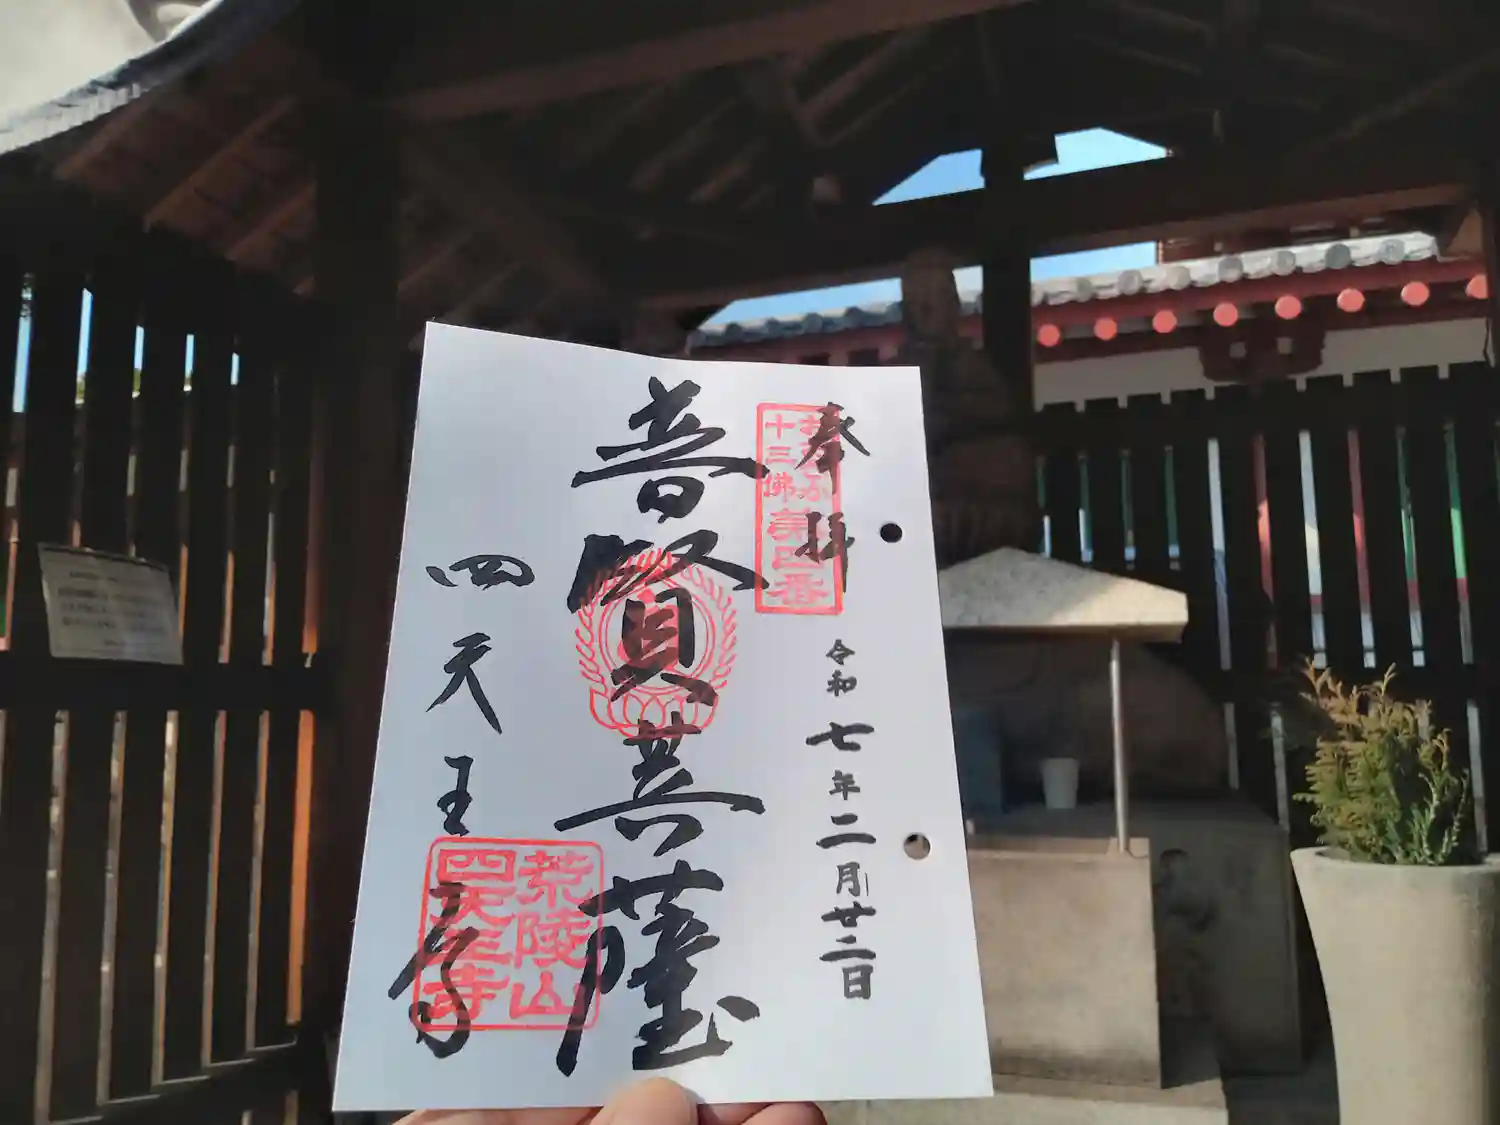 奉拝
おおさか
十三佛
第四番
令和七年二月廿二日
普賢菩薩
四天王寺
荒陵山
四天王寺